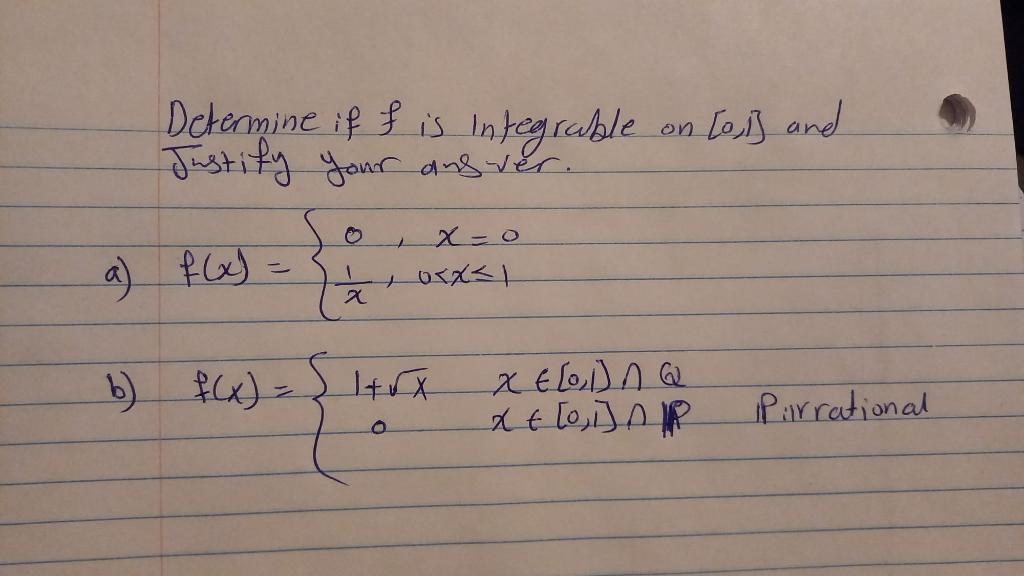 Determine if f is Integrable on [0,1] and
Justify your answer.
a) f(x) = { 0 , x = 0
1/x , 0<x≤1
b) f(x) = { 1+√x x ∈ [0,1] ∩ Q
0 x ∈ [0,1] ∩ P P:irrational